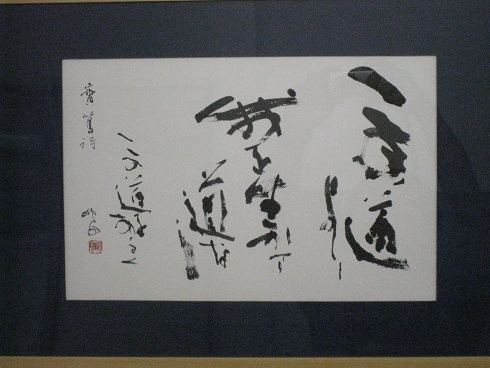 この道
より
我を生かす
道なし
この道を歩く
實篤詩